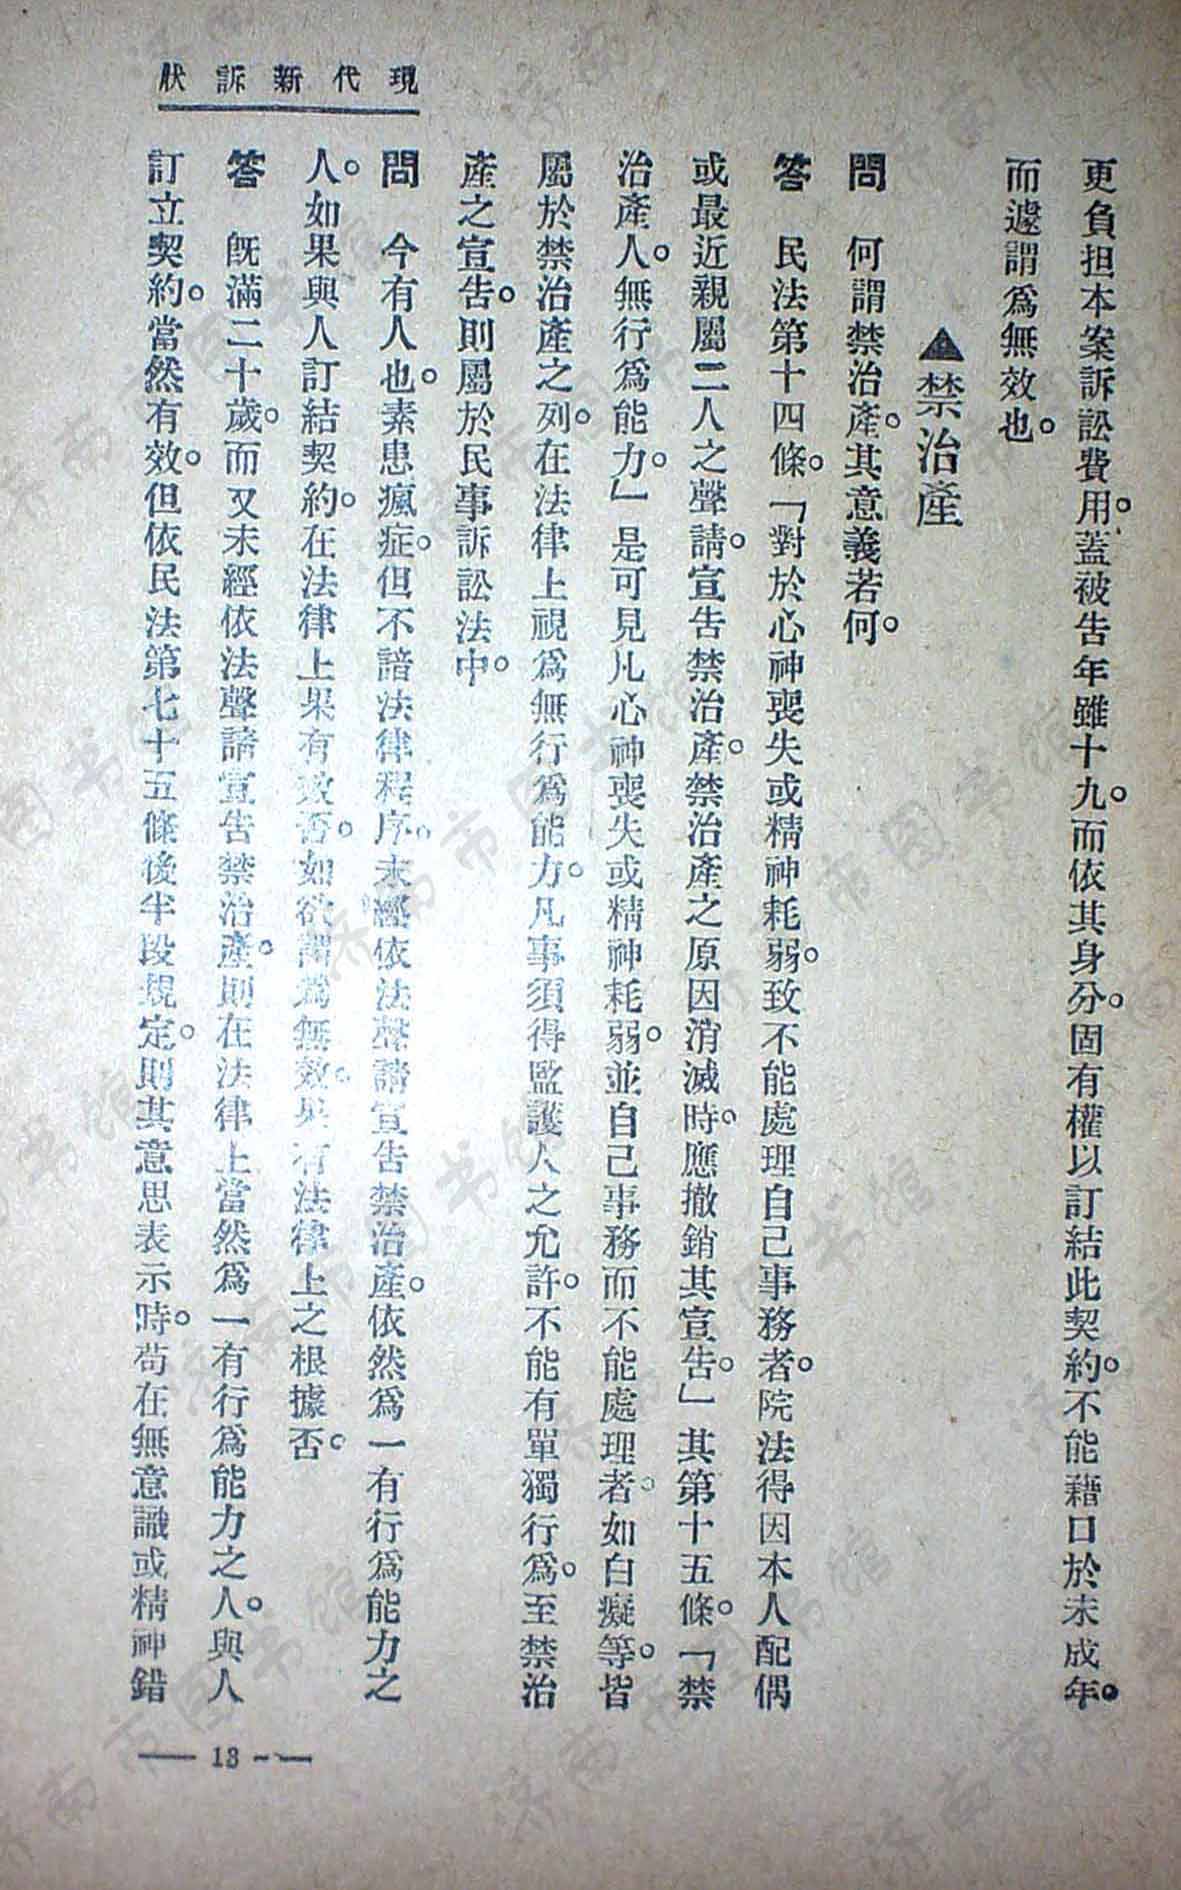 現代新訴狀
更負担本案訴訟費用。蓋被告年雖十九。而依其身分。固有權以訂結此契約。不能藉口於未成年。
而遽謂爲無效也。
▲禁治產
問　何謂禁治產。其意義若何。
答　民法第十四條。「對於心神喪失或精神耗弱。致不能處理自己事務者。院法得因本人配偶
或最近親屬二人之聲請。宣告禁治產。禁治產之原因消滅時。應撤銷其宣告。」其第十五條。「禁
治產人。無行爲能力。」是可見凡心神喪失或精神耗弱。並自己事務而不能處理者。如白癡等。皆
屬於禁治產之列。在法律上視爲無行爲能力。凡事須得監護人之允許。不能有單獨行爲。至禁治
產之宣告。則屬於民事訴訟法中。
問　今有人也。素患瘋症。但不諳法律程序。未經依法聲請宣告禁治產。依然爲一有行爲能力之
人。如果與人訂結契約。在法律上果有效否。如欲謂爲無效。果有法律上之根據否。
答　旣滿二十歲。而又未經依法聲請宣告禁治產。則在法律上當然爲一有行爲能力之人。與人
訂立契約。當然有效。但依民法第七十五條後半段規定。則其意思表示時。苟在無意識或精神錯
— 13 —